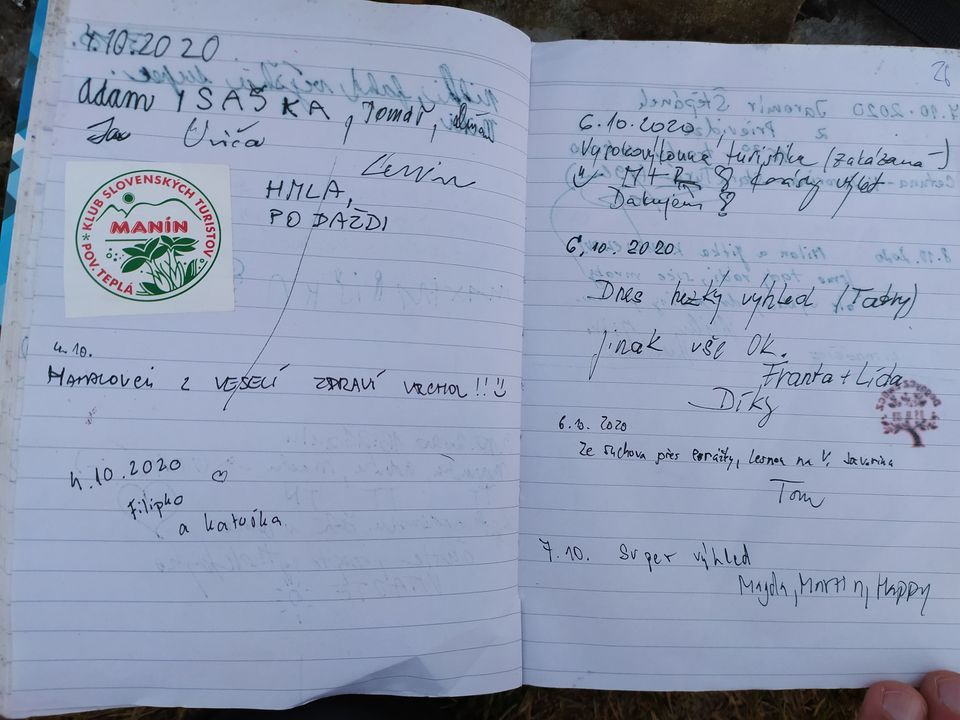 4.10.2020
Adam ISAŠKA, Tomáš,
HMLA,
PO DAZDI
KLUB SLOVENSKÝCH TURISTOV
MANÍN
POV. TEPLÁ
4.10.
Z VESELÍ ZDRAVÍ VRCHOL !!!
4.10.2020
Filipko
a Katuška
28
6.10.2020
Vysokovýkonná turistika (zakázaná
M+R & krásny výlet
Ďakujem
6.10.2020
Dnes hezký výhled (Tatry)
jinak vše OK.
Franta + Lída
Díky
6.10.2020
Ze Suchova přes Lesnou na V. Javorina
Tom
7.10. Super výhled
Magda, Martin, Happy